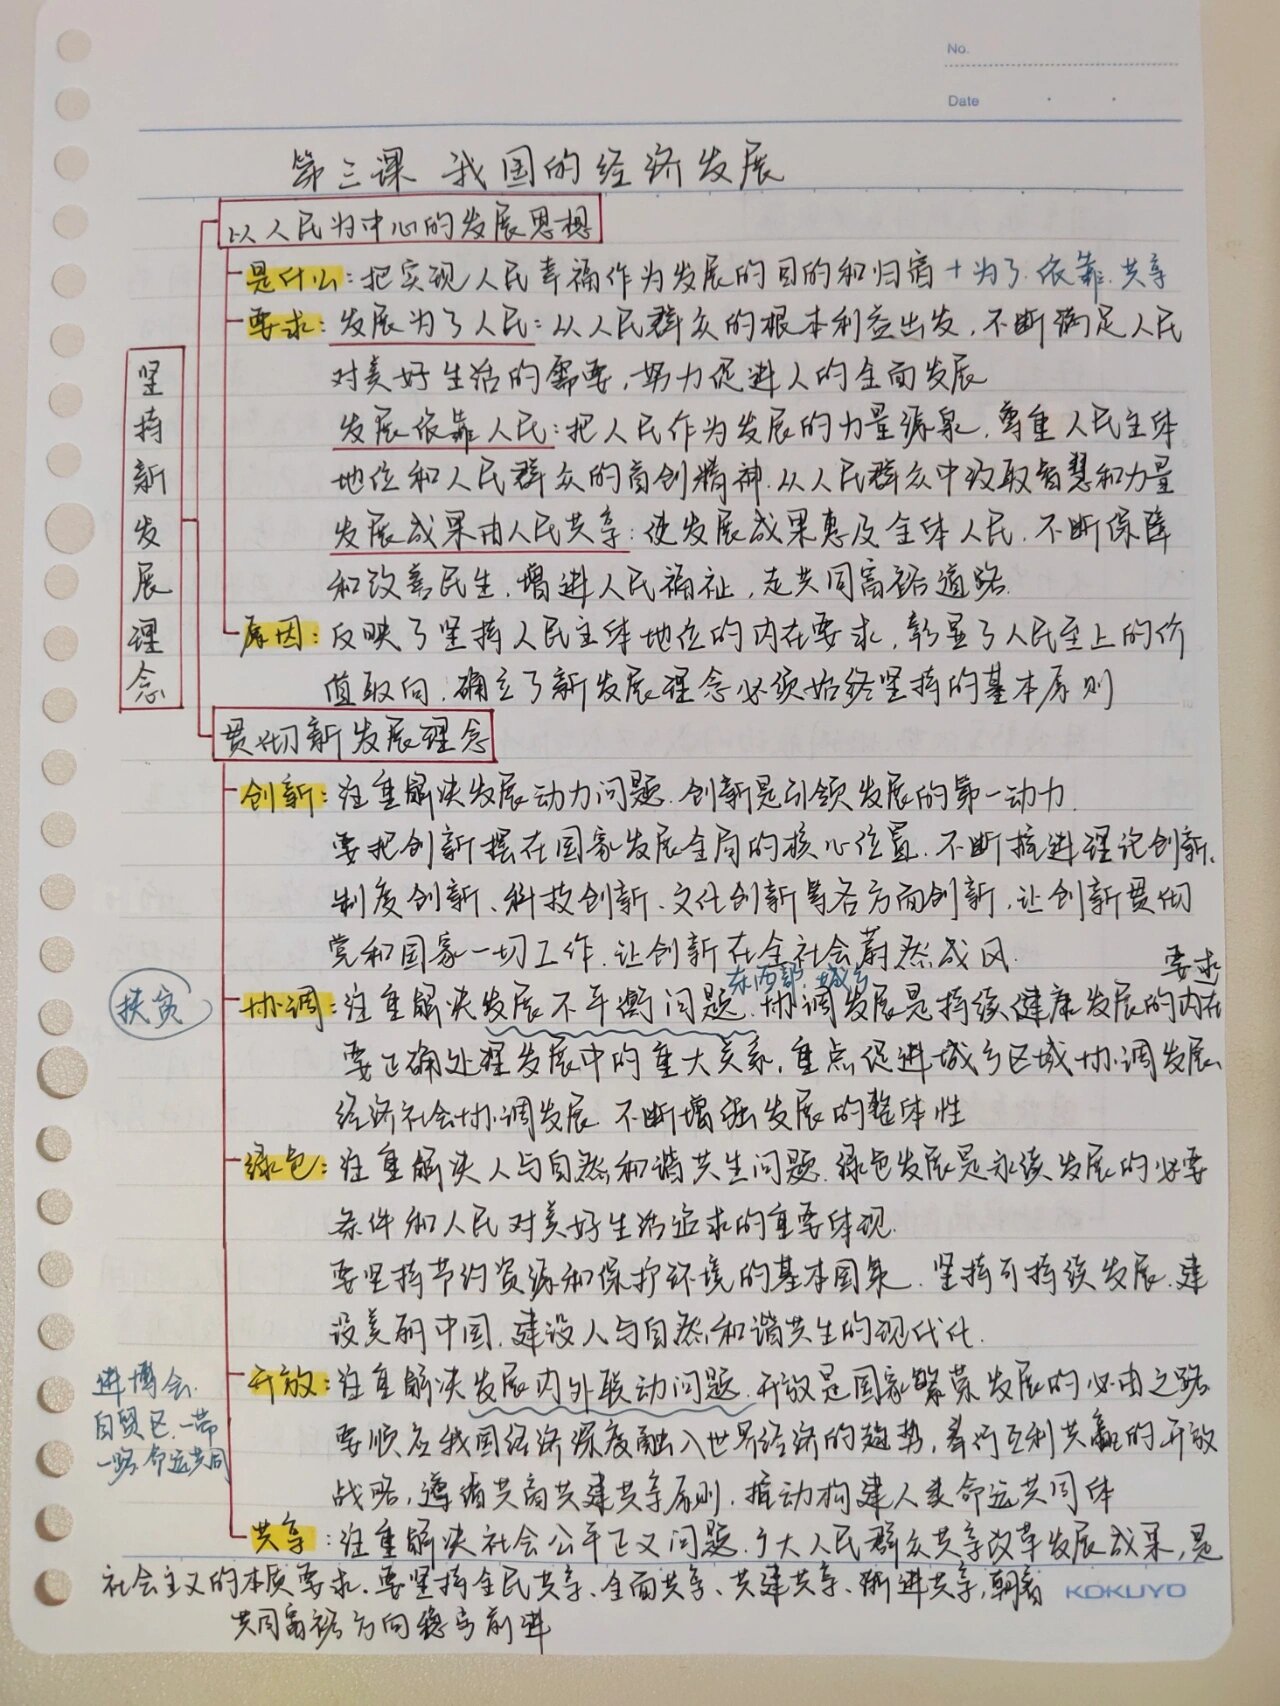 No.
Date
第三课 我国的经济发展
以人民为中心的发展思想
是什么：把实现人民幸福作为发展的目的和归宿+为了.依靠.共享
要求：发展为了人民：从人民群众的根本利益出发，不断满足人民
对美好生活的需要，努力促进人的全面发展
发展依靠人民：把人民作为发展的力量源泉，尊重人民主体
地位和人民群众的首创精神.从人民群众中汲取智慧和力量
发展成果由人民共享：使发展成果惠及全体人民.不断保障
和改善民生.增进人民福祉，走共同富裕道路.
坚持新发展理念
原因：反映了坚持人民主体地位的内在要求，彰显了人民至上的价
值取向.确立了新发展理念必须始终坚持的基本原则
贯彻新发展理念
创新：注重解决发展动力问题.创新是引领发展的第一动力.
要把创新摆在国家发展全局的核心位置.不断推进理论创新、
制度创新、科技创新、文化创新等各方面创新，让创新贯彻
党和国家一切工作.让创新在全社会蔚然成风.
东西部.城乡
要求
扶贫
协调：注重解决发展不平衡问题.协调发展是持续健康发展的内在
要正确处理发展中的重大关系，重点促进城乡区域协调发展、
经济社会协调发展 不断增强发展的整体性
绿色：注重解决人与自然和谐共生问题.绿色发展是永续发展的必要
条件和人民对美好生活追求的重要体现.
要坚持节约资源和保护环境的基本国策.坚持可持续发展.建
设美丽中国.建设人与自然和谐共生的现代化.
进博会.
自贸区.一带
一路.命运共同
开放：注重解决发展内外联动问题.开放是国家繁荣发展的必由之路
要顺应我国经济深度融入世界经济的趋势，奉行互利共赢的开放
战略，遵循共商共建共享原则.推动构建人类命运共同体
共享：注重解决社会公平正义问题.广大人民群众共享改革发展成果，是
社会主义的本质要求.要坚持全民共享、全面共享、共建共享、渐进共享，朝着
KOKUYO
共同富裕方向稳步前进